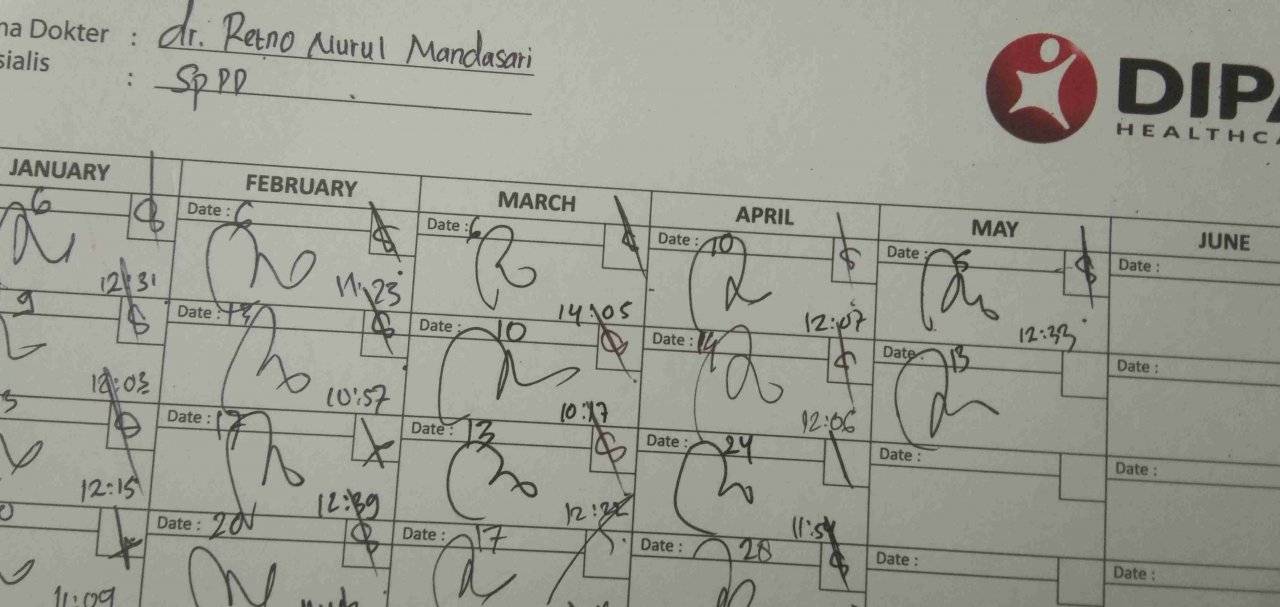 na Dokter : dr. Retno Nurul Mandasari
sialis : SpPD
DIPA
HEALTHCA
JANUARY FEBRUARY MARCH APRIL MAY JUNE
6 Date : 6 Date : 6 Date : 10 Date : 5 Date :
12:31 11:23 14:05 12:07 12:33
9 Date : 13 Date : 10 Date : 14 Date : 13 Date :
12:03 10:57 10:17 12:06
3 Date : 17 Date : 13 Date : 24 Date : Date :
12:15 12:39 12:22 11:54
0 Date : 20 Date : 17 Date : 28 Date : Date :
11:09